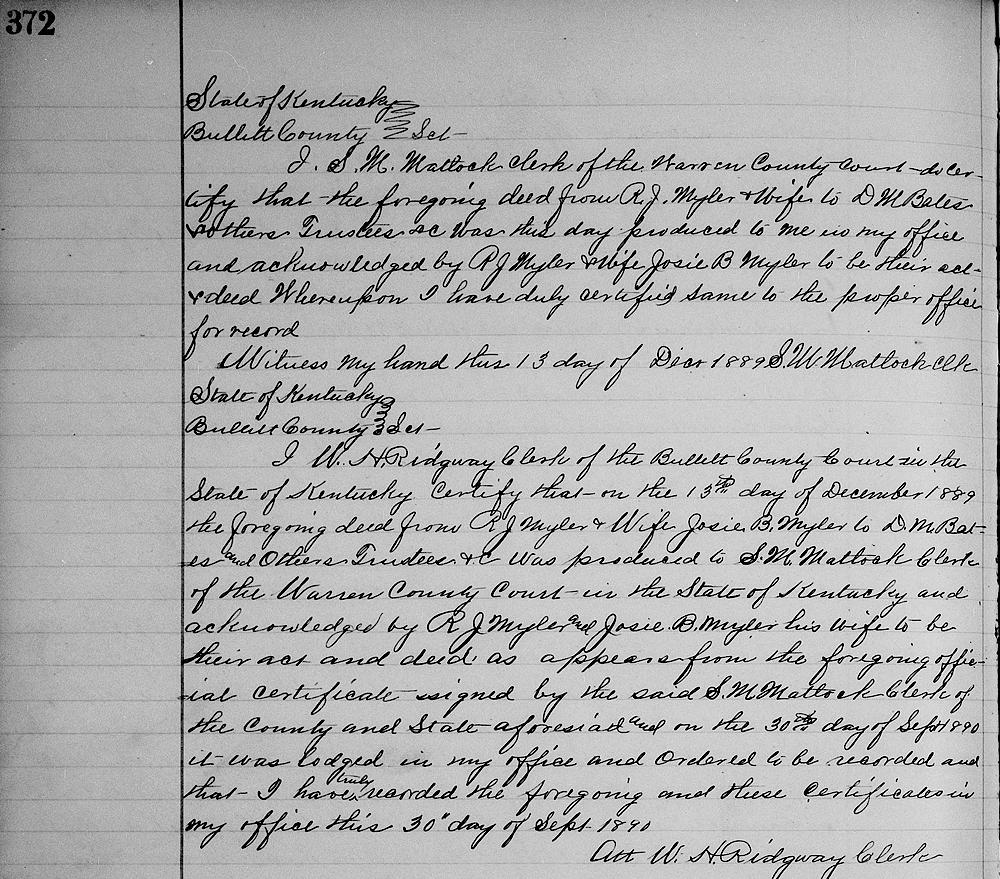 372
State of Kentucky
Bullitt County Sct
I. S. M. Matlock Clerk of the Warren County Court do cer-
tify that the foregoing deed from R. J. Myler & Wife to D M Bates
& others Trustees &c was this day produced to me in my office
and acknowledged by R J Myler & Wife Josie B Myler to be their act
& deed Whereupon I have duly certified same to the proper office
for record
Witness my hand this 13 day of Decr 1889 S. W. Matlock Clk
State of Kentucky
Bullitt County Sct
I W. H. Ridgway Clerk of the Bullitt County Court in the
State of Kentucky certify that on the 13th day of December 1889
the foregoing deed from R J Myler & Wife Josie B. Myler to D. M. Bat-
es and Others Trustees &c was produced to S. M. Matlock Clerk
of the Warren County Court in the State of Kentucky and
acknowledged by R J Myler and Josie B. Myler his wife to be
their act and deed as appears from the foregoing offic-
ial certificate signed by the said S. M Matlock Clerk of
the County and State aforesiad and on the 30th day of Sept 1890
it was lodged in my office and Ordered to be recorded and
that I have truly recorded the foregoing and these certificates in
my office this 30" day of Sept 1890
Att W. H Ridgway Clerk